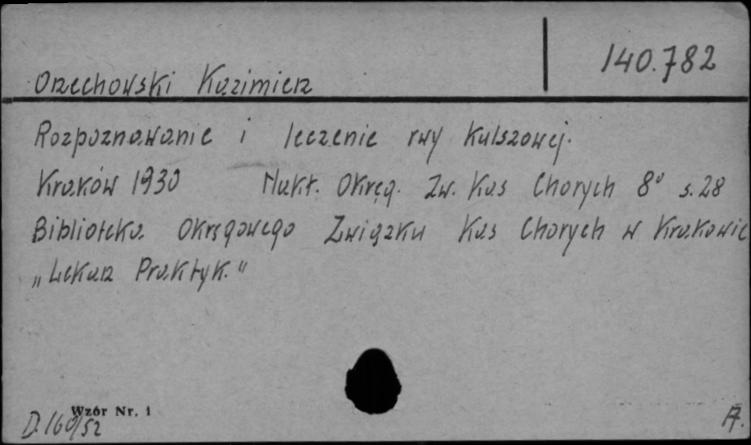 140.782
Orzechowski Kazimierz
Rozpoznawanie i leczenie rwy kulszowej.
Kraków 1930 Nukł. Okręg. Zw. Kas Chorych 8° s.28
Biblioteka Okręgowego Związku Kas Chorych w Krakowie
„Lekarz Praktyk."
Wzór Nr. 1
D.160/52 A.